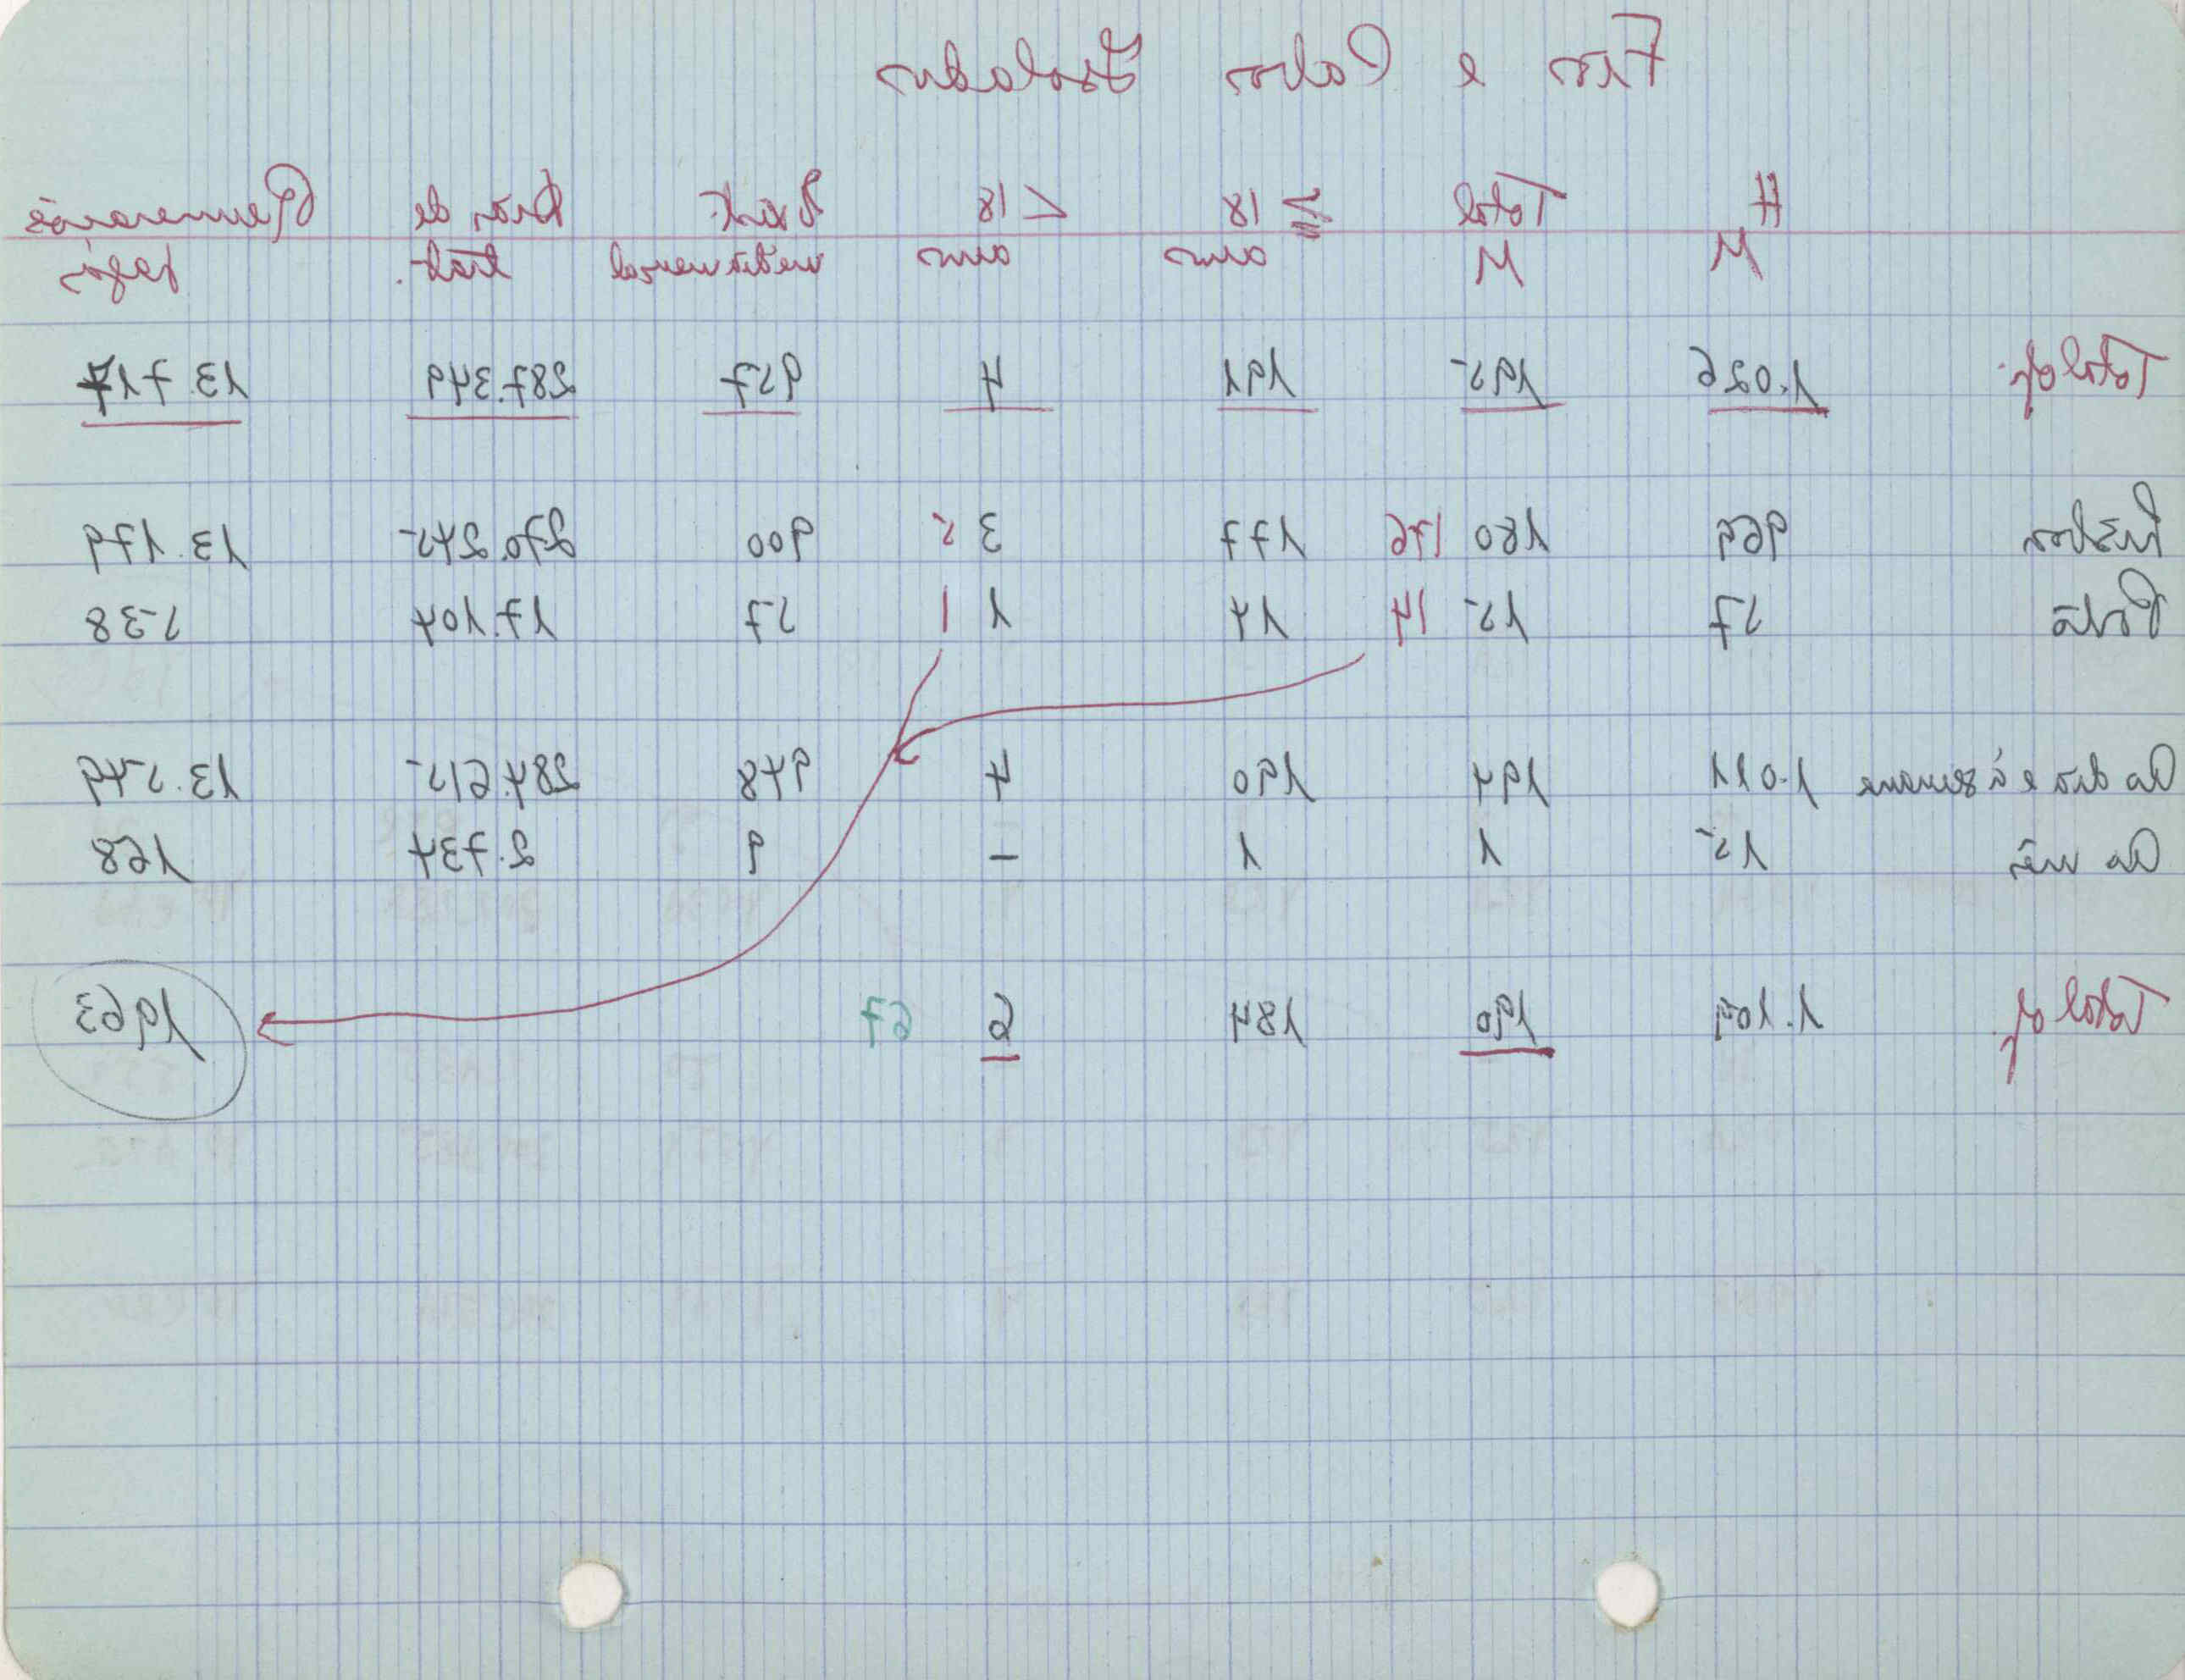 Fios e Cabos Isolados
H M Total M ≥ 18 anos < 18 anos Exist. média mensal Dias de trab. Remunerações pagas
Total 1.026 195 191 4 957 287.349 13.717
Lisboa 969 180 176 177 3 5 900 270.245 13.179
Porto 57 15 14 14 1 1 57 17.104 538
Ao dia e à semana 1.011 194 190 4 948 284.615 13.549
Ao mês 15 1 1 – 9 2.734 168
Total 1.109 190 184 6 67 1963